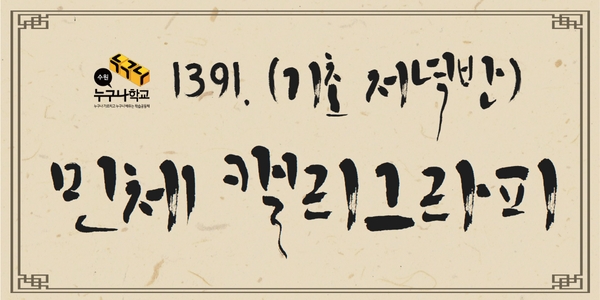 수원
누구나
누구나학교
누구나 가르치고 누구나 배우는 학습공동체
1391. (기초 저녁반)
민체 캘리그라피